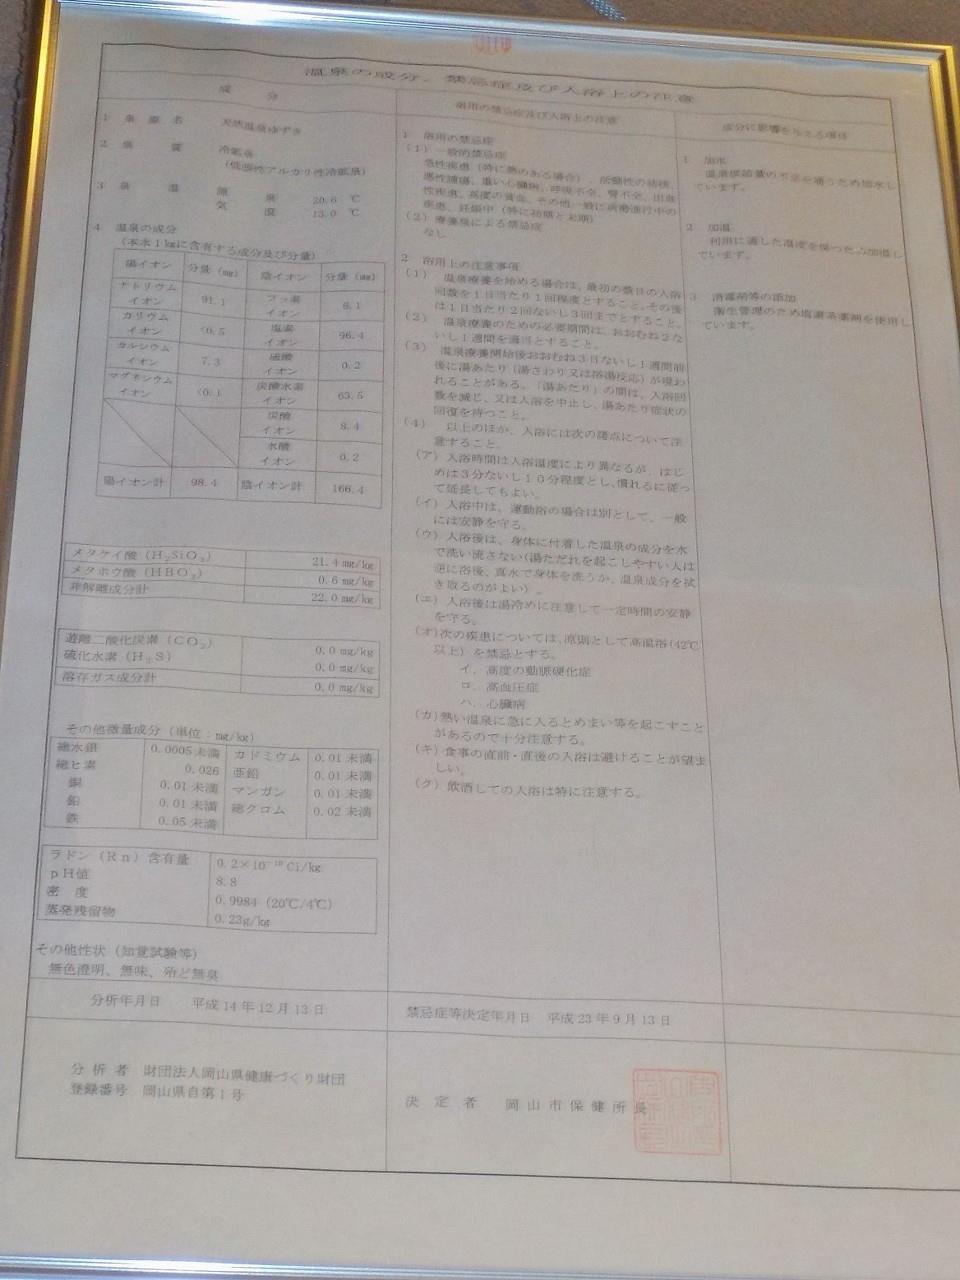 温泉の成分、禁忌症及び入浴上の注意
成 分
浴用の禁忌症及び入浴上の注意
成分に影響を与える項目
1 泉源名 天然温泉ゆずき
2 泉 質 冷鉱泉
(低張性アルカリ性冷鉱泉)
3 泉 温 源 泉 20.6 ℃
気 温 13.0 ℃
4 温泉の成分
(本水1kgに含有する成分及び分量)
陽イオン 分量(mg) 陰イオン 分量(mg)
ナトリウムイオン 91.1 フッ素イオン 8.1
カリウムイオン <0.5 塩素イオン 96.4
カルシウムイオン 7.3 硫酸イオン 0.2
マグネシウムイオン <0.1 炭酸水素イオン 63.5
炭酸イオン 8.4
水酸イオン 0.2
陽イオン計 98.4 陰イオン計 166.4
メタケイ酸(H₂SiO₃) 21.4 mg/kg
メタホウ酸(HBO₂) 0.6 mg/kg
非解離成分計 22.0 mg/kg
遊離二酸化炭素(CO₂) 0.0 mg/kg
硫化水素(H₂S) 0.0 mg/kg
溶存ガス成分計 0.0 mg/kg
その他微量成分(単位:mg/kg)
総水銀 0.0005 未満 カドミウム 0.01 未満
総ヒ素 0.026 亜鉛 0.01 未満
銅 0.01 未満 マンガン 0.01 未満
鉛 0.01 未満 総クロム 0.02 未満
鉄 0.05 未満
ラドン(Rn)含有量 0.2×10⁻¹⁰ Ci/kg
pH値 8.8
密 度 0.9984 (20℃/4℃)
蒸発残留物 0.23g/kg
その他性状(知覚試験等)
無色澄明、無味、殆ど無臭
分析年月日 平成14年12月13日
分 析 者 財団法人岡山県健康づくり財団
登録番号 岡山県自第1号
1 浴用の禁忌症
(1) 一般的禁忌症
急性疾患(特に熱のある場合)、活動性の結核、
悪性腫瘍、重い心臓病、呼吸不全、腎不全、出血
性疾患、高度の貧血、その他一般に病勢進行中の
疾患、妊娠中(特に初期と末期)
(2) 療養泉による禁忌症
なし
2 浴用上の注意事項
(1) 温泉療養を始める場合は、最初の数日の入浴
回数を1日当たり1回程度とすること。その後
は1日当たり2回ないし3回までとすること。
(2) 温泉療養のための必要期間は、おおむね2な
いし1週間を適当とすること。
(3) 温泉療養開始後おおむね3日ないし1週間前
後に湯あたり(湯さわり又は浴湯反応)が現わ
れることがある。「湯あたり」の間は、入浴回
数を減じ、又は入浴を中止し、湯あたり症状の
回復を待つこと。
(4) 以上のほか、入浴には次の諸点について注
意すること。
(ア) 入浴時間は入浴温度により異なるが、はじ
めは3分ないし10分程度とし、慣れるに従っ
て延長してもよい。
(イ) 入浴中は、運動浴の場合は別として、一般
には安静を守る。
(ウ) 入浴後は、身体に付着した温泉の成分を水
で洗い流さない(湯ただれを起こしやすい人は
逆に浴後、真水で身体を洗うか、温泉成分を拭
き取るのがよい)。
(エ) 入浴後は湯冷めに注意して一定時間の安静
を守る。
(オ)次の疾患については、原則として高温浴(42℃
以上)を禁忌とする。
イ. 高度の動脈硬化症
ロ. 高血圧症
ハ. 心臓病
(カ)熱い温泉に急に入るとめまい等を起こすこと
があるので十分注意する。
(キ)食事の直前・直後の入浴は避けることが望ま
しい。
(ク) 飲酒しての入浴は特に注意する。
禁忌症等決定年月日 平成23年9月13日
決 定 者 岡山市保健所長
1 加水
温泉供給量の不足を補うため加水し
ています。
2 加温
利用に適した温度を保つため加温し
ています。
3 消毒剤等の添加
衛生管理のため塩素系薬剤を使用し
ています。